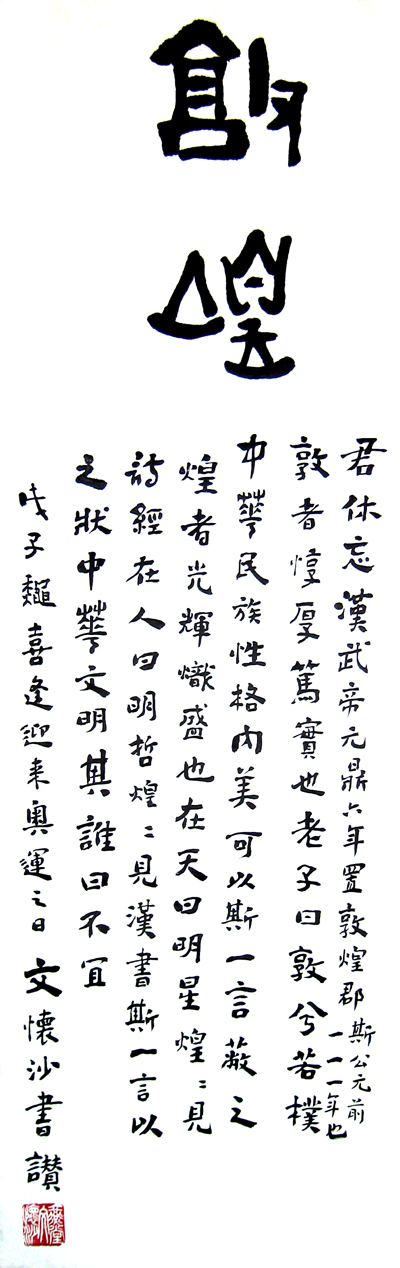 敦
煌
君休忘漢武帝元鼎六年置敦煌郡斯公元前一一一年也
敦者惇厚篤實也老子曰敦兮若樸
中華民族性格内美可以斯一言蔽之
煌者光輝熾盛也在天曰明星煌〻見
詩經在人曰明哲煌〻見漢書斯一言以
之狀中華文明其誰曰不宜
戊子龝喜逢迎来奧運之日文懷沙書讃